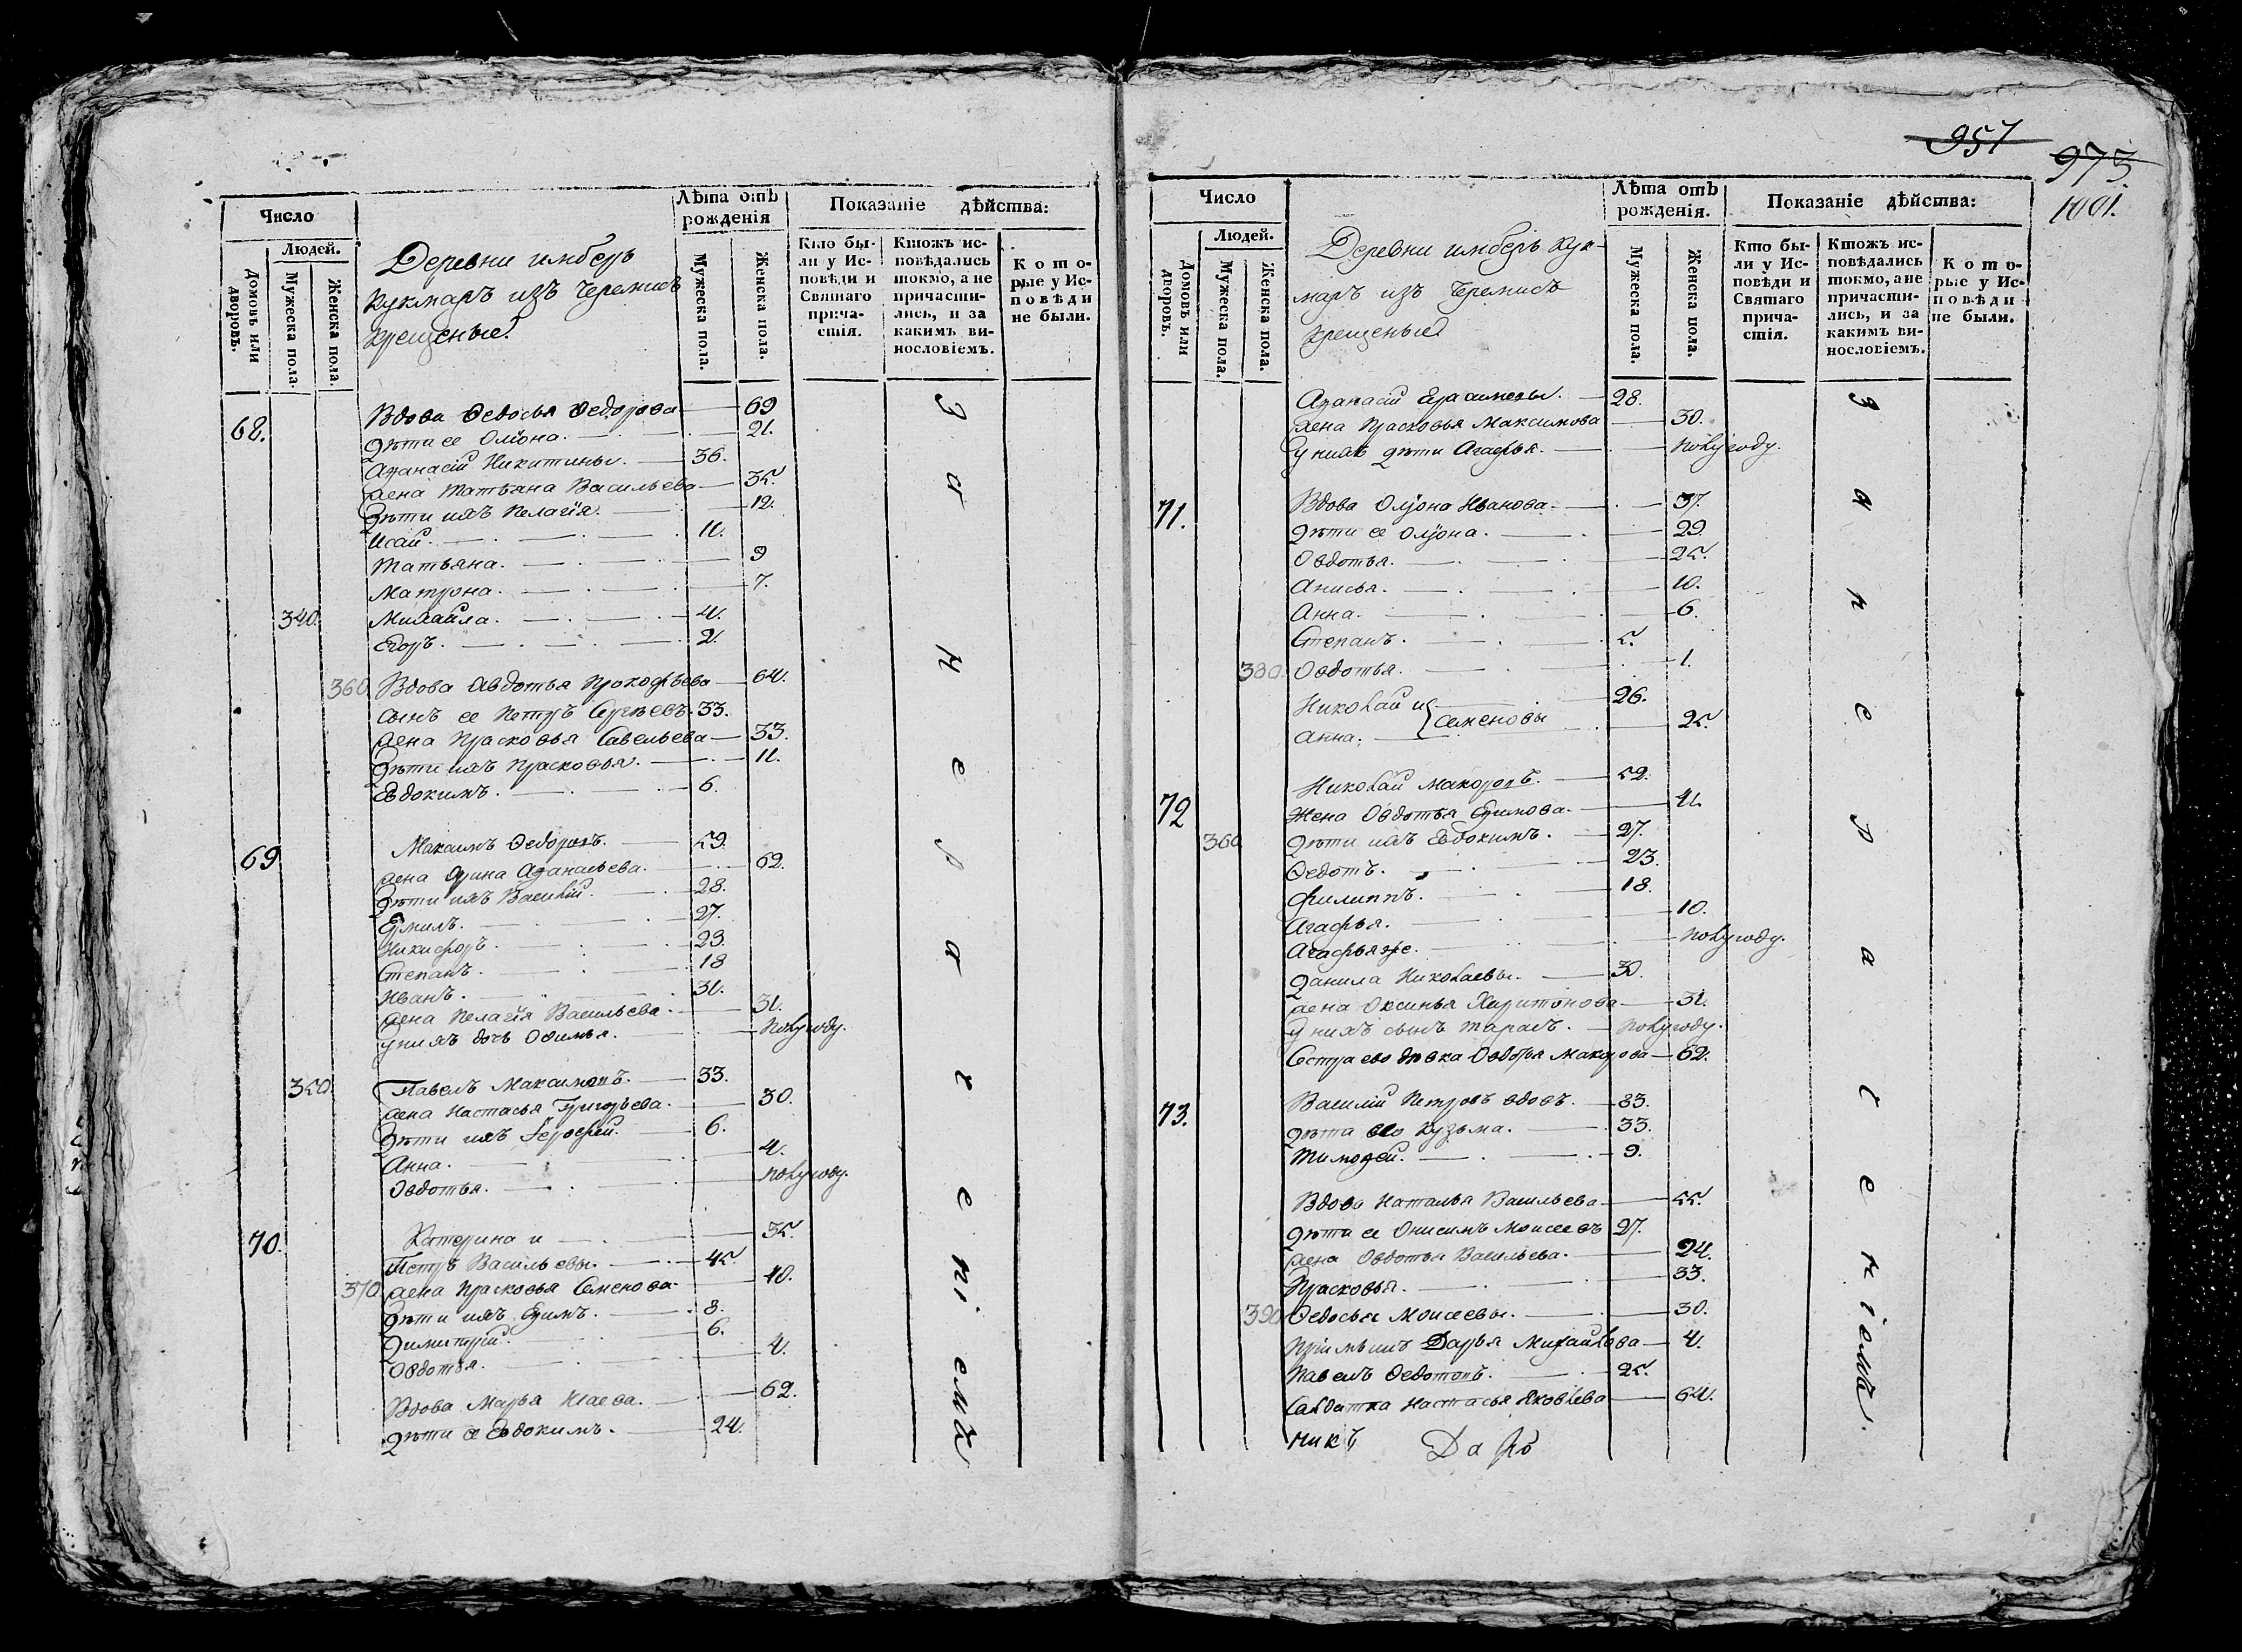 957
973
1001.
Число
Людей.
Домовъ или дворовъ.
Мужеска пола.
Женска пола.
Деревни имберъ
кукмаръ изъ Черемисъ
крещеные
Лѣта отъ рожденія
Мужеска пола.
Женска пола.
Показаніе дѣйства:
Кто бы-
ли у Ис-
повѣди и
Святаго
прича-
стія.
Ктожъ ис-
повѣдались
токмо, а не
причасти-
лись, и за
какимъ ви-
нословіемъ.
К о т о-
рые у Ис-
п о в ѣ д и
не были.
68. Вдова Ѳедосья Ѳедорова 69
Дѣти ее Олiона. 21.
Аѳанасiй Никитины. 36.
жена Татьяна Васильева 35.
Дѣти ихъ Пелагiя. 12.
Исай. 11.
Татьяна. 9
Матрона. 7.
340. Михайла. 4.
Егоръ. 2.
360 Вдова Авдотья Прокофьева 64.
сынъ ее Петръ Сергѣевъ. 33.
жена Прасковья Савельева 33.
Дѣти ихъ Прасковья. 11.
Евдокимъ. 6.
69 Максимъ Ѳедоровъ. 59.
жена Ирина Аѳанасьева. 62.
Дѣти ихъ Василiй. 28.
Ермилъ. 27.
Никифоръ. 23.
Степанъ. 18
Иванъ. 31.
жена Пелагiя Васильева. 31.
у нихъ дочь Офимья. полугоду.
350 Павелъ Максимовъ. 33.
жена Настасья Григорьева. 30.
Дѣти ихъ Ерофей. 6.
Анна. 4.
Овдотья. полугоду.
70. Катерина и 35.
Петръ Васильевы. 45.
370. жена Прасковья Семенова 40.
Дѣти ихъ Ефимъ. 8.
Димитрiй. 6.
Овдотья. 4.
Вдова Марья Исаева. 62.
Дѣти ее Евдокимъ. 24.
За Не ра че ні емъ
Число
Людей.
Домовъ или дворовъ.
Мужеска пола.
Женска пола.
Деревни имберъ кук-
маръ изъ Черемисъ
крещеные
Лѣта отъ рожденія.
Мужеска пола.
Женска пола.
Показаніе дѣйства:
Кто бы-
ли у Ис-
повѣди и
Святаго
прича-
стія.
Ктожъ ис-
повѣдались
токмо, а не
причасти-
лись, и за
какимъ ви-
нословіемъ.
К о т о-
рые у Ис-
п о в ѣ д и
не были.
Аѳанасiй Герасимовы. 28.
жена Прасковья Максимова 30.
у нихъ дѣти Агафья. полугоду.
71. Вдова Олiона Иванова. 37.
Дѣти ее Олiона. 29.
Овдотья. 25.
Анисья. 10.
Анна. 6.
Степанъ. 5.
380. Овдотья. 1.
Николай и 26.
Анна. Семеновы 25
72 Николай Макаровъ. 52.
Жена Овдотья Ефимова. 41.
360. Дѣти ихъ Евдокимъ. 27.
Ѳедотъ. 23.
Филиппъ. 18.
Агафья. 10.
Агафья же. полугоду.
Данила Николаевы. 30.
жена Оксинья Харитонова 31.
у нихъ сынъ Тарасъ. полугоду.
Сестра ево дѣвка Овдотья Макарова 62.
73. Василiй Петровъ вдовъ. 83.
Дѣти ево Кузьма. 33.
Тимоѳей. 9.
Вдова Наталья Васильева 55.
Дѣти ее Онисимъ Моисеевъ 27.
жена Овдотья Васильева. 24.
Прасковья. 33.
390 Ѳедосья Моисеевы. 30.
Дарья Михайлова 4.
Павелъ Ѳедотовъ. 25.
Салдатка Настасья Яковлева 64.
За не ра че ніемъ.